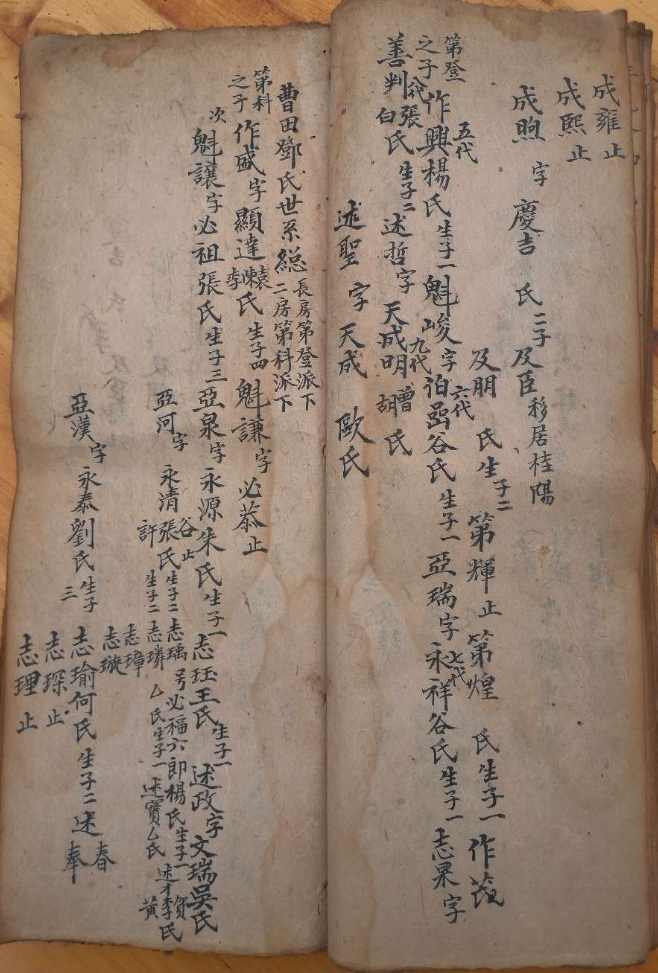 成雍止
成熙止
成煦 字 慶吉 氏 二子 及臣 移居桂陽
及朋 氏 生子二 第輝止 第煌 氏 生子一 作
第登之子 作興 五代 楊氏 生子一 魁峻 字 伯 六代 谷氏 生子一 亞瑞 字 永祥 七代 谷氏 生子一 志果 字
善判 谷 張 氏 生子二 述哲 字 天成明 九代 曹 胡 氏
白
述聖 字 天成 歐氏
曹田鄧氏世系總 長房第登派下 二房第科派下
第科之子 作盛 字 顯達 袁 陳 李 氏 生子四 魁謙 字 必恭止
次 魁讓 字 必祖 張氏 生子三 亞泉 字 永源 朱氏 生子一 志珏 王氏 生子一 述政 字 文瑞 吳氏
亞河 字 永清 谷止 張氏 生子二 志瑀 号必福六郎 楊氏 生子一 述才 李氏
許 生子二 志璘 氏 生子一 述寶 氏 黃
志璋
志璇
亞漢 字 永泰 劉氏 生子三 志瑜 何氏 生子二 述春 奉
志琛止
志理止